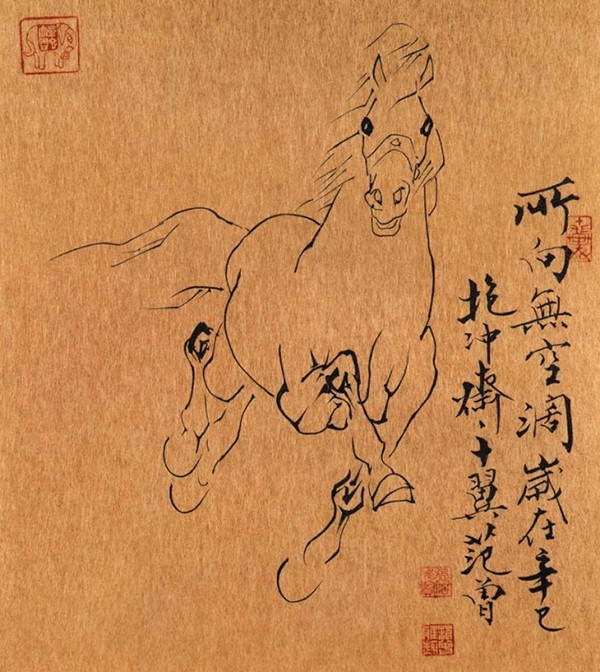 所向無空闊歲在辛巳
抱沖齋十翼范曾